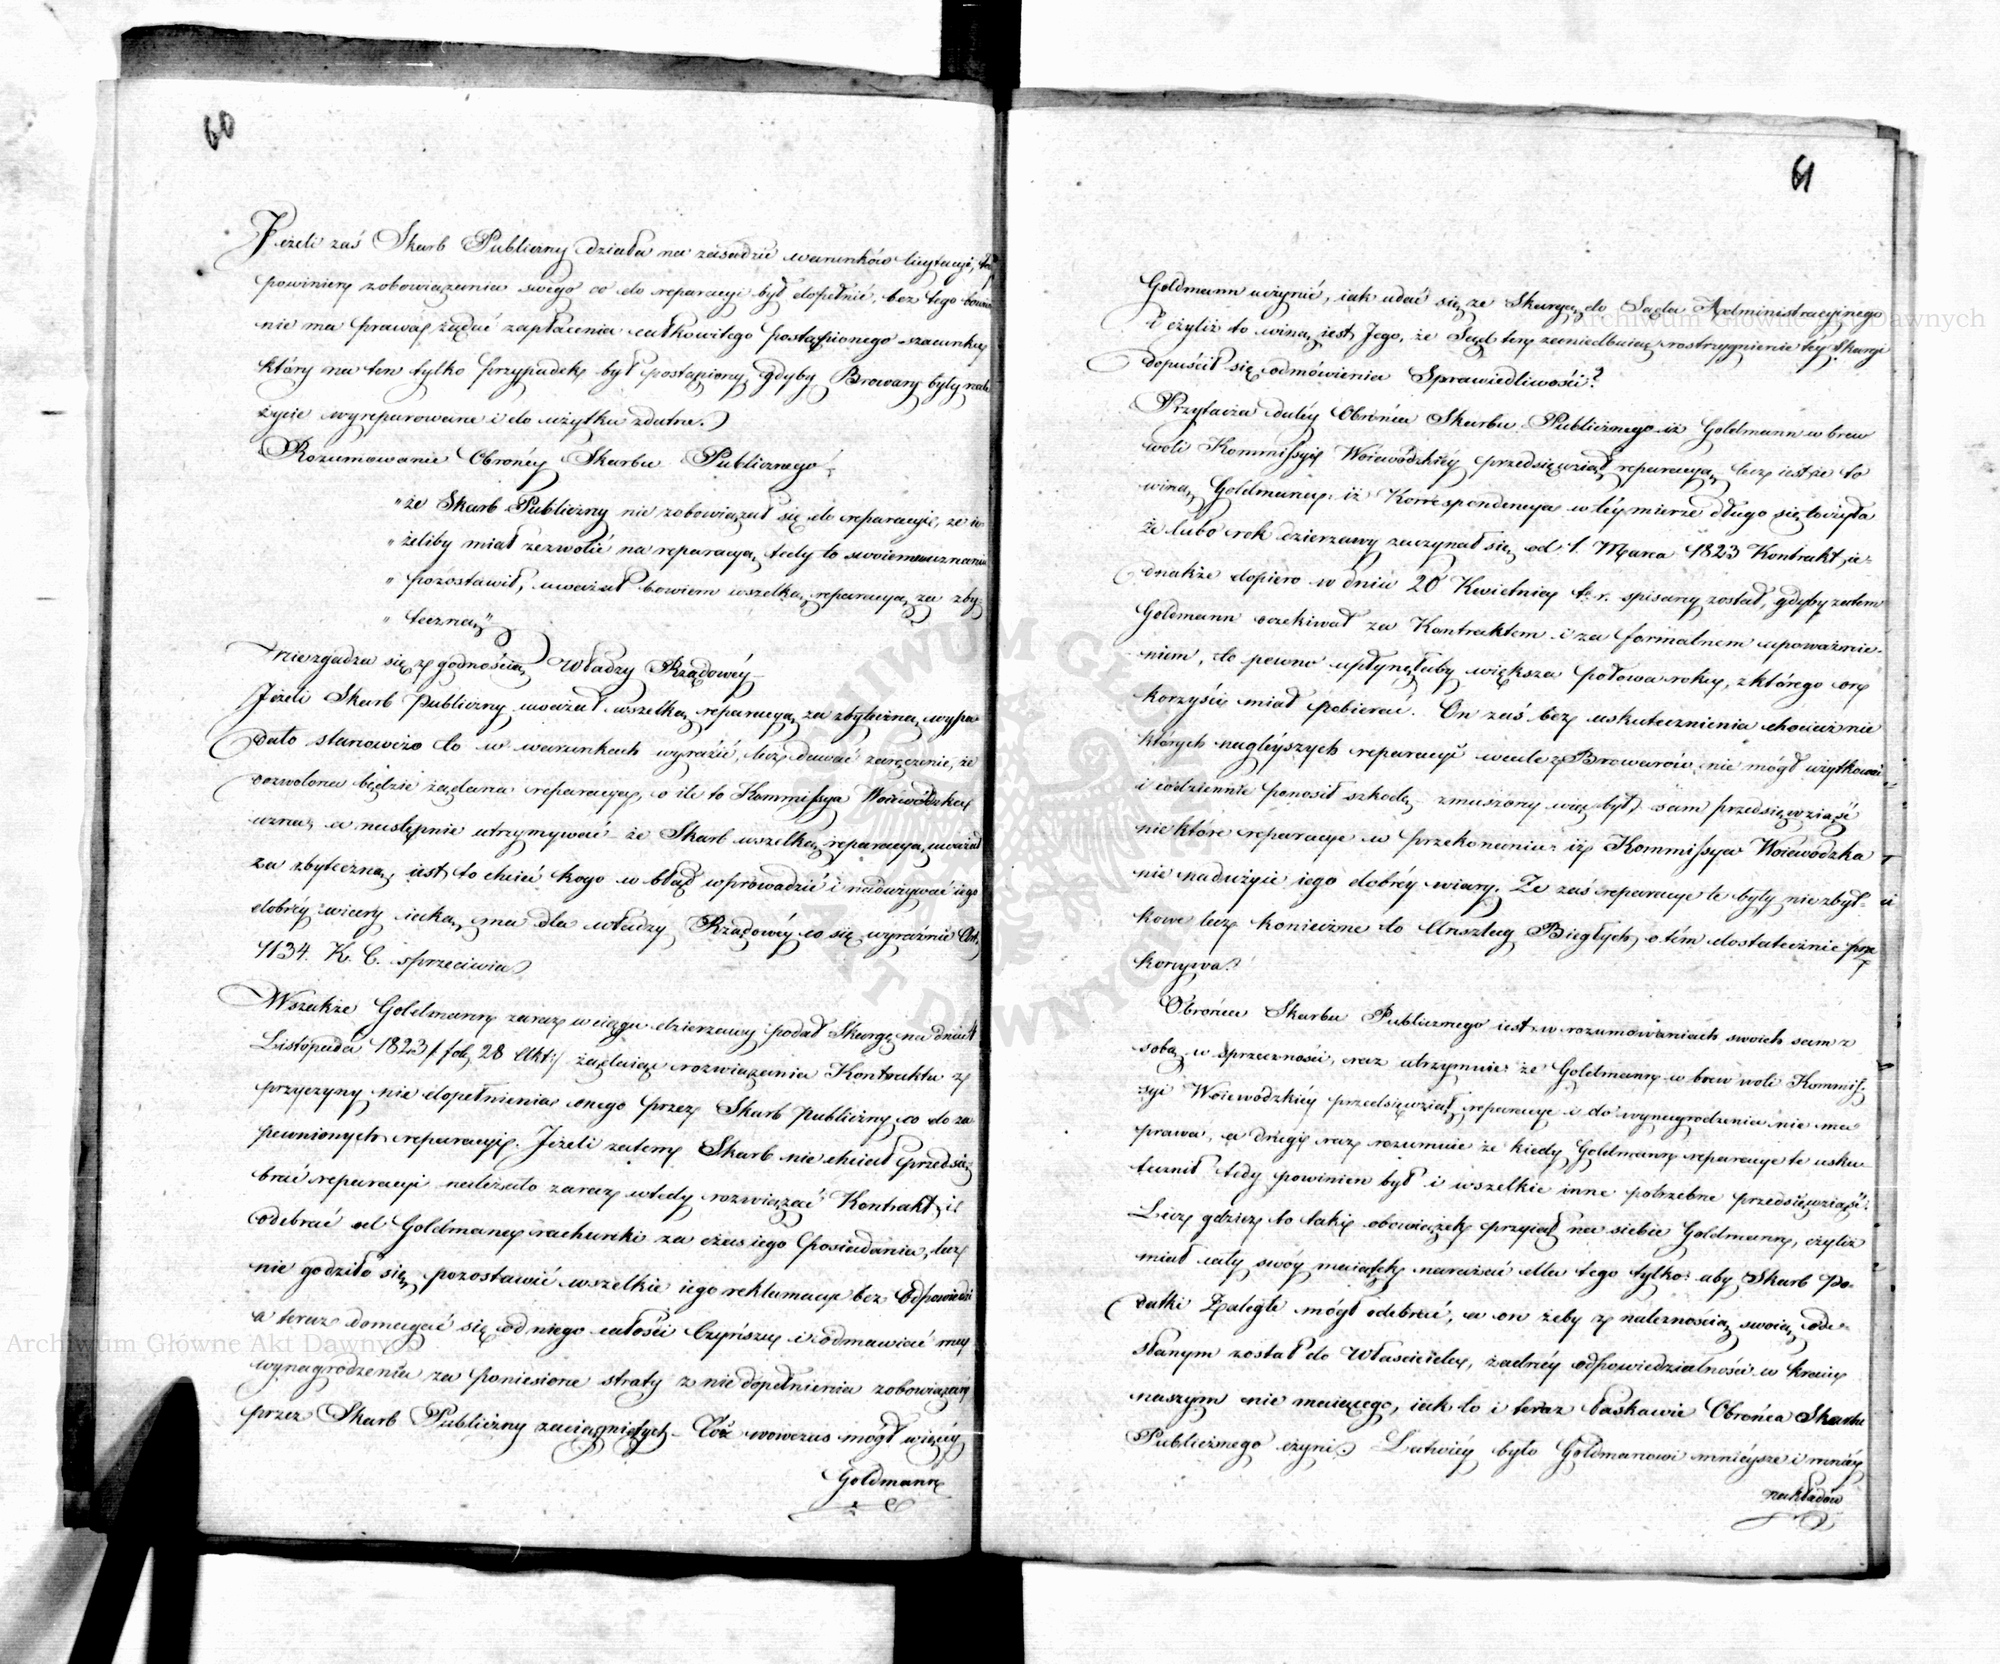 60
Jeżeli zaś Skarb Publiczny działa na zasadzie warunków licytacyi, to
powinien zobowiązania swego co do reparacyi był dopełnić, bez tego bowiem
nie ma prawa żądać zapłacenia całkowitego postąpionego szacunku
który na ten tylko przypadek był postąpiony, gdyby Browary były nale
życie wyreparowane i do użytku zdatne.
Rozumowanie Obrońcy Skarbu Publicznego:
"że Skarb Publiczny nie zobowiązał się do reparacyi, że ie
"żeliby miał zezwolić na reparacyą, tedy to swoiemu uznaniu
"pozostawił, uważał bowiem wszelką reparacyą za zby-
"teczną"
niezgadza się z godnością Władzy Rządowéy
Jeżeli Skarb Publiczny uważał wszelką reparacyą za zbyteczną, wypa
dało stanowczo to w warunkach wyrazić, lecz dawać zaręczenie, że
dozwolona będzie żądana reparacya, o ile to Kommissya Woiewódzka
uzna, a następnie utrzymywać że Skarb wszelką reparacyą uważał
za zbyteczną, iest to chcieć kogo w błąd wprowadzić i nadużywać iego
dobréy wiary iaką ma dla władzy Rządowéy co się wyraźnie Art.
1134. K. C. sprzeciwia
Wszakże Goldmann zaraz w ciągu dzierzawy podał Skargę na dniu 4
Listopada 1823 /: fol. 28 Akt :/ żądaiąc rozwiązania Kontraktu z
przyczyny nie dopełnienia onego przez Skarb Publiczny co do za
pewnionych reparacyi. Jeżeli zatem Skarb nie chciał przedsię
brać reparacyi należało zaraz wtedy rozwiązać Kontrakt i
odebrać od Goldmana rachunki za czas iego posiadania, lecz
nie godziło się pozostawić wszelkie iego reklamacye bez odpowiedzi
a teraz domagać się od niego całości Czynszu i odmawiać mu
wynagrodzenia za poniesione straty z nie dopełnienia zobowiązań
przez Skarb Publiczny zaciągniętych. Cóż wówczas mógł więcéy
Goldmann
61
Goldmann uczynić, iak udać się ze Skargą do Sądu Administracyjnego
i czyliż to winą iest Jego, że Sąd ten zaniedbuiąc rozstrzygnienie téy Skargi
dopuścił się odmówienia Sprawiedliwości?
Przytacza daléy Obrońca Skarbu Publicznego iż Goldmann w brew
woli Kommissyi Woiewódzkiéy przedsięwziął reparacyą, lecz iestże to
winą Goldmana, iż Korrespondencya w téy mierze długo się toczyła
że lubo rok dzierzawy zaczynał się od 1. Marca 1823 Kontrakt ie-
dnakże dopiero w dniu 20 Kwietnia t. r. spisany został, gdyby zatem
Goldmann oczekiwał za Kontraktem i za formalnem upoważnie-
niem, to pewno upłynęłaby większa połowa roku, z którego on
korzyści miał pobierać. On zaś bez uskutecznienia chociaż nie
których nagléyszych reparacyi wcale z Browarów nie mógł użytkować
i codziennie ponosił szkodę, zmuszony więc był sam przedsięwziąść
nie które reparacye w przekonaniu iż Kommissya Woiewódzka
nie nadużyie iego dobréy wiary. Że zaś reparacye te były nie zbyt-
kowe lecz konieczne do Anszlag Biegłych o tém dostatecznie prze
konywa.
Obrońca Skarbu Publicznego iest w rozumowaniach swoich sam z
sobą w sprzeczności, raz utrzymuie że Goldmann w brew woli Kommis-
syi Woiewódzkiéy przedsięwziął reparacye i do wynagrodzenia nie ma
prawa, a drugi raz rozumuie że kiedy Goldmann reparacye te usku
tecznił tedy powinien był i wszelkie inne potrzebne przedsięwziąść.
Lecz gdzież to taki obowiązek przyiął na siebie Goldmann, czyliż
miał cały swóy maiątek narażać dla tego tylko: aby Skarb Po-
datki Zaległe mógł odebrać, a on żeby z należnością swoią ode-
słanym został do Właściciela, żadnéy odpowiedzialności w kraiu
naszym nie maiącego, iak to i teraz łaskawie Obrońca Skarbu
Publicznego czyni. Łatwiéy było Goldmanowi mnieysze i mniéy
nakładów